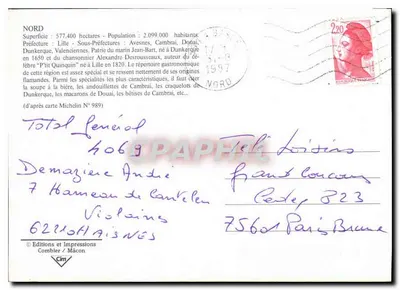 NORD
Superficie : 577.400 hectares - Population : 2.099.000 habitants
Préfecture : Lille - Sous-Préfectures : Avesnes, Cambrai, Douai,
Dunkerque, Valenciennes. Patrie du marin Jean-Bart, né à Dunkerque
en 1650 et du chansonnier Alexandre Desrousseaux, auteur du célèbre
"P'tit Quinquin" né à Lille en 1820. Le répertoire gastronomique
de cette région est assez spécial et se ressent nettement de ses origines
flamandes. Parmi les spécialités les plus caractéristiques, il faut citer
la soupe à la bière, les andouillettes de Cambrai, les craquelins de
Dunkerque, les macarons de Douai, les bêtises de Cambrai, etc...
(d'après carte Michelin N° 989)
2,20
NORD
Total Général
4069
Demazière André
7 Hameau de Cantelen
Violaines
62210 HAISNES
Télé Loisirs
Grand Concours
Cedex 823
75601 Paris Brune
© Editions et Impressions
Combier / Mâcon
Cim